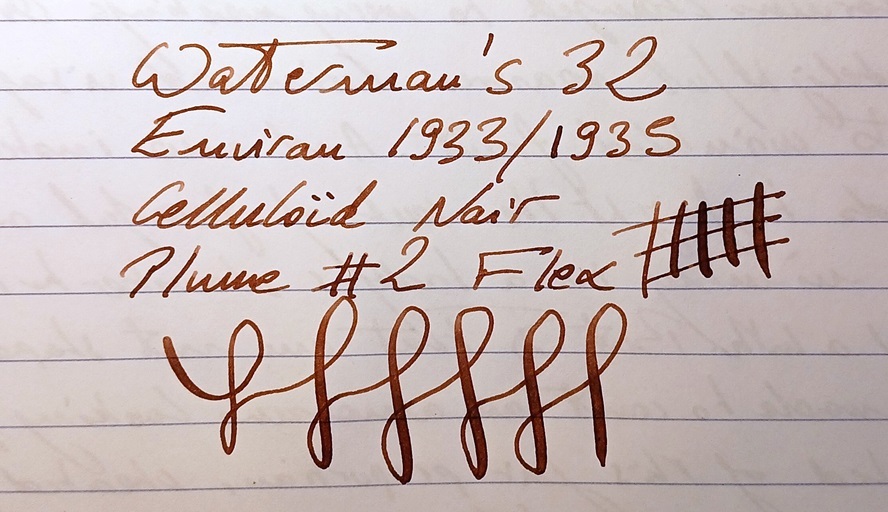 Waterman's 32
Environ 1933/1935
Celluloïd Noir
Plume #2 Flex